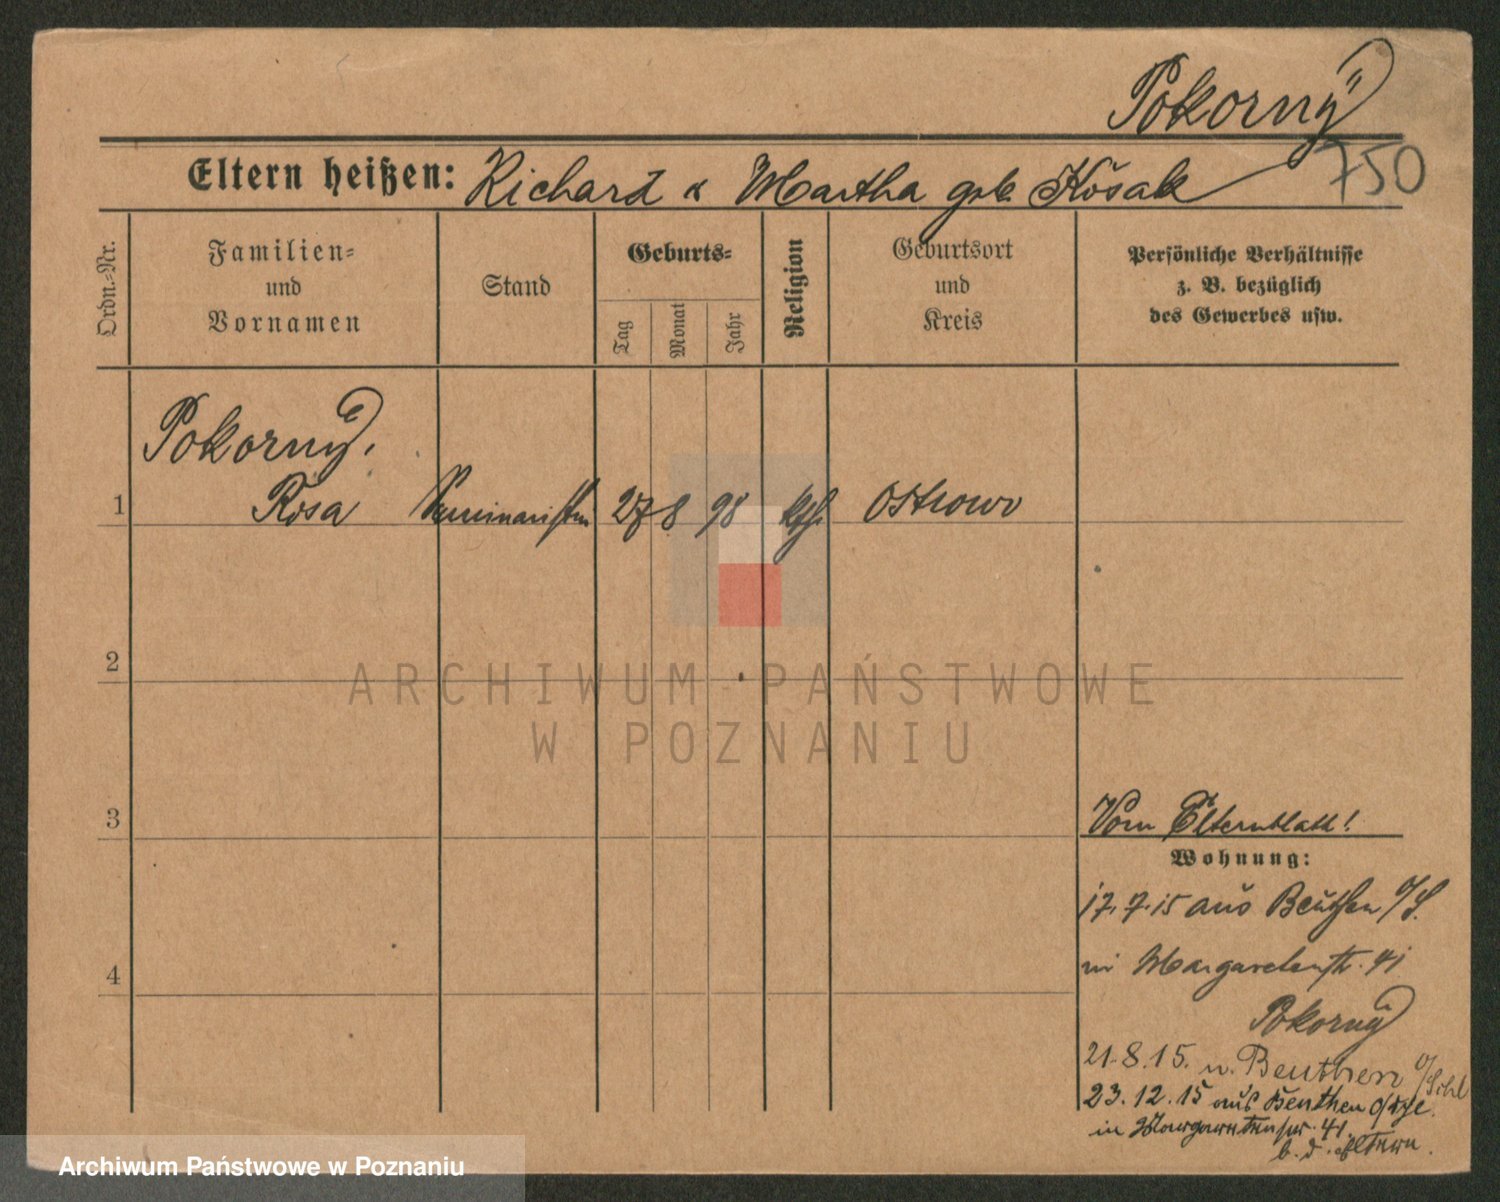 Pokorny
750
Eltern heißen: Richard & Martha geb. Kosak
Ordn.-Nr.
Familien-
und
Vornamen
Stand
Geburts-
Tag
Monat
Jahr
Religion
Geburtsort
und
Kreis
Persönliche Verhältnisse
z. B. bezüglich
des Gewerbes usw.
Pokorny,
1 Rosa Seminaristin 27 8 98 kth. Ostrowo
2
3
4
ARCHIWUM PAŃSTWOWE
W POZNANIU
Vom Elternblatt!
Wohnung:
17.7.15 aus Beuthen O/S.
in Margaretenstr. 41
Pokorny
21.8.15. n. Beuthen O/Schl
23.12.15 aus Beuthen
in Margaretenstr. 41.
b. d. Eltern.
Archiwum Państwowe w Poznaniu